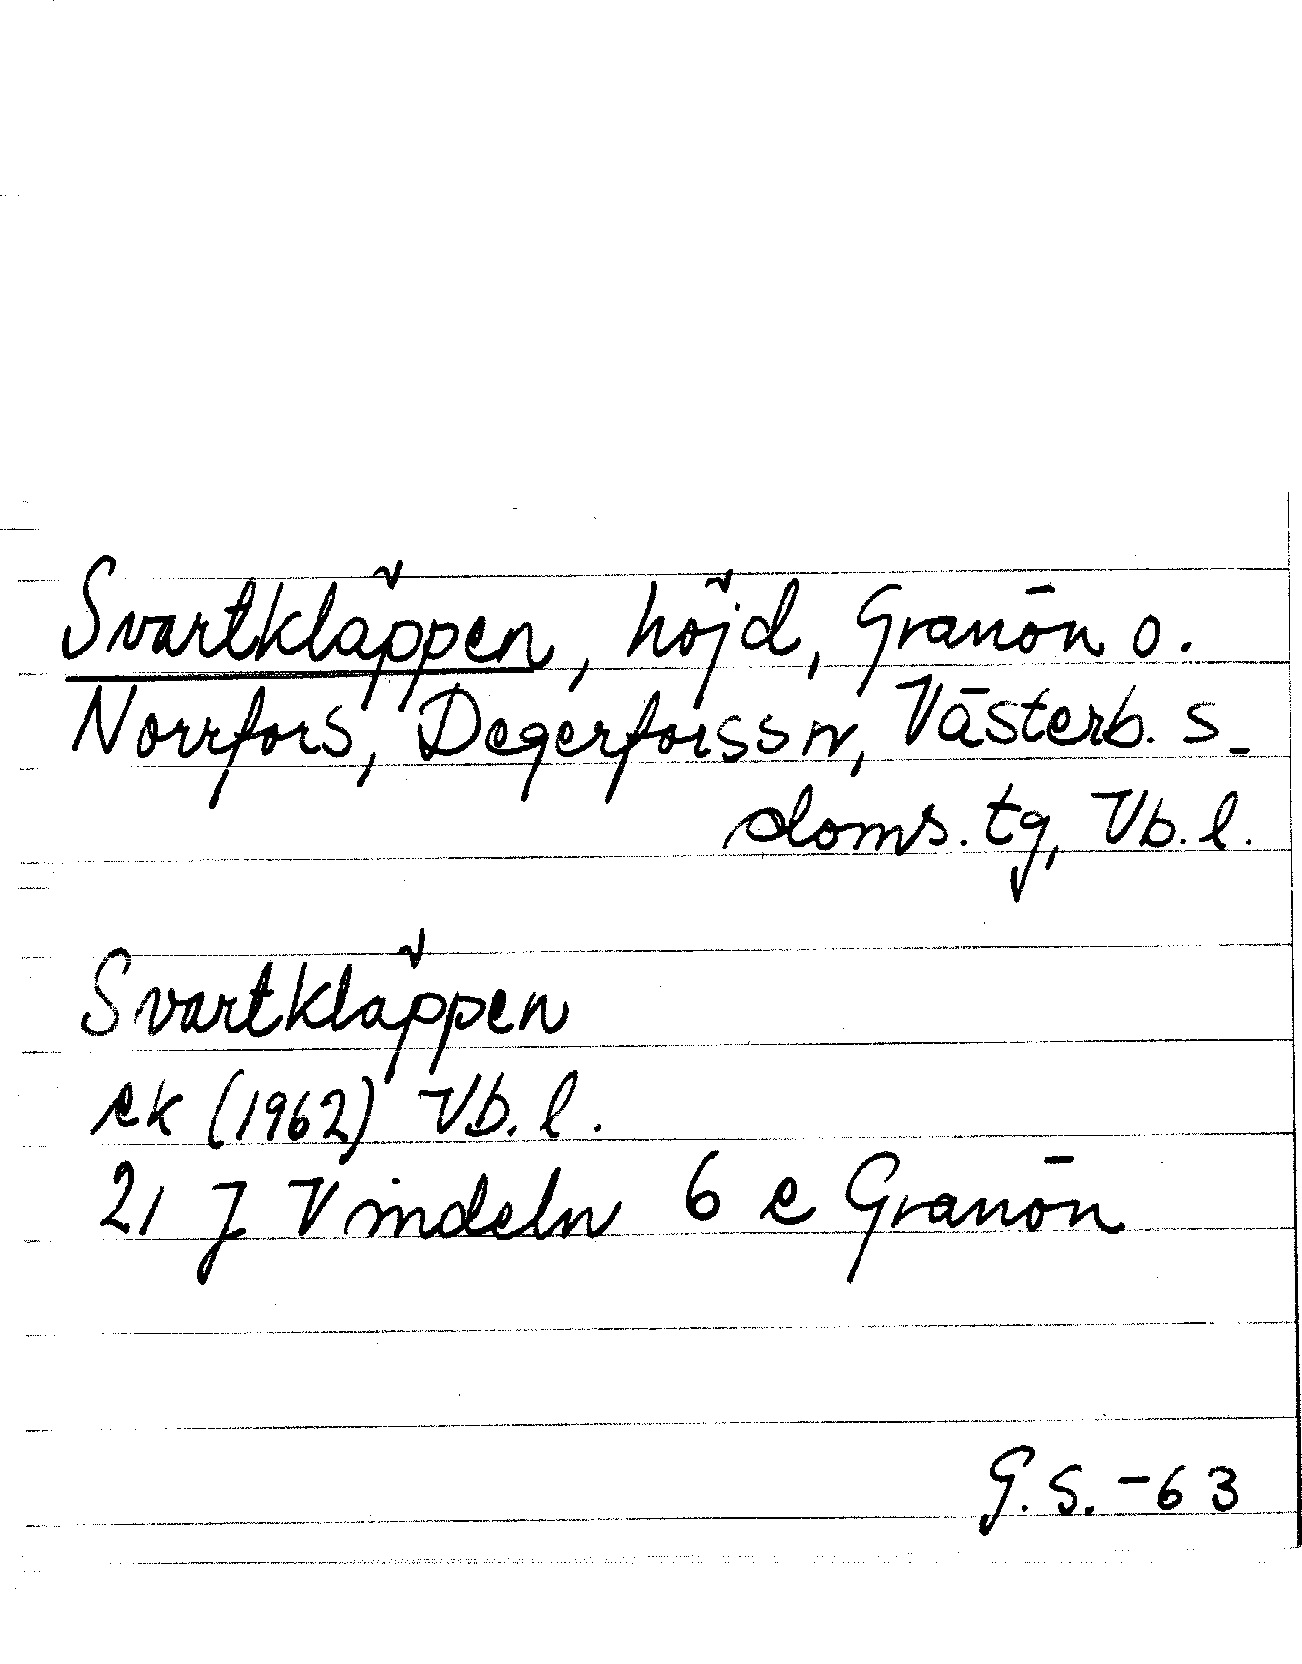 Svartkläppen, höjd, Granön o.
Norrfors, Degerforssn, Västerb. s.
doms. tg, Vb. l.
Svartkläppen
ek (1962) Vb. l.
21 J Vindeln 6 e Granön
G. S. -63